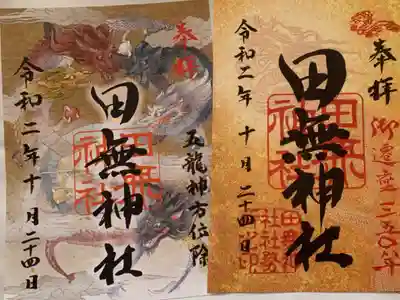 奉拝
五龍神方位除
田無神社
令和二年十月二十四日
奉拝
御遷座三五〇年
田無神社
田無神社
令和二年十月二十四日
田無神社